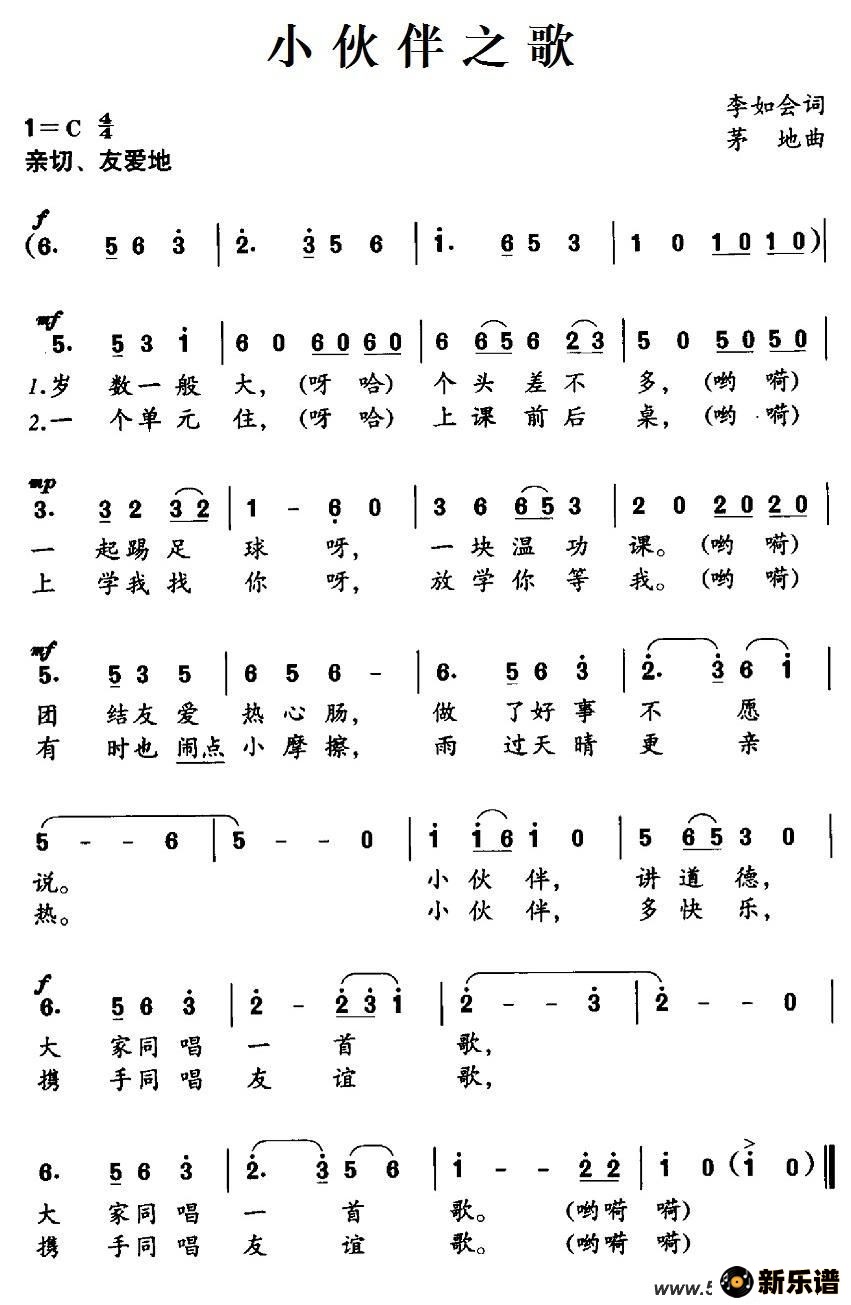 小伙伴之歌
1=C 4/4
李如会词
亲切、友爱地
茅 地曲
f
(6. 5 6 3 | 2. 3 5 6 | 1. 6 5 3 | 1 0 1 0 1 0)|
mf
5. 5 3 1 | 6 0 6 0 6 0 | 6 6 5 6 2 3 | 5 0 5 0 5 0 |
1.岁 数一般 大,(呀 哈) 个头差不 多,(哟 嗬)
2.一 个单元 住,(呀 哈) 上课前后 桌,(哟 嗬)
mp
3. 3 2 3 2 | 1 - 6 0 | 3 6 6 5 3 | 2 0 2 0 2 0 |
一 起踢足 球 呀, 一块温功 课。(哟 嗬)
上 学我找 你 呀, 放学你等 我。(哟 嗬)
mf
5. 5 3 5 | 6 5 6 - | 6. 5 6 3 | 2. 3 6 1 |
团 结友爱 热心肠, 做 了好事 不 愿
有 时也闹点小摩擦, 雨 过天晴 更 亲
5 - - 6 | 5 - - 0 | 1 1 6 1 0 | 5 6 5 3 0 |
说。 小伙伴, 讲道德,
热。 小伙伴, 多快乐,
f
6. 5 6 3 | 2 - 2 3 1 | 2 - - 3 | 2 - - 0 |
大 家同唱 一 首 歌,
携 手同唱 友 谊 歌,
6. 5 6 3 | 2. 3 5 6 | 1 - - 2 2 | 1 0 (1 0)‖
大 家同唱 一 首 歌。 (哟嗬 嗬)
携 手同唱 友 谊 歌。 (哟嗬 嗬)
www.5
新乐谱